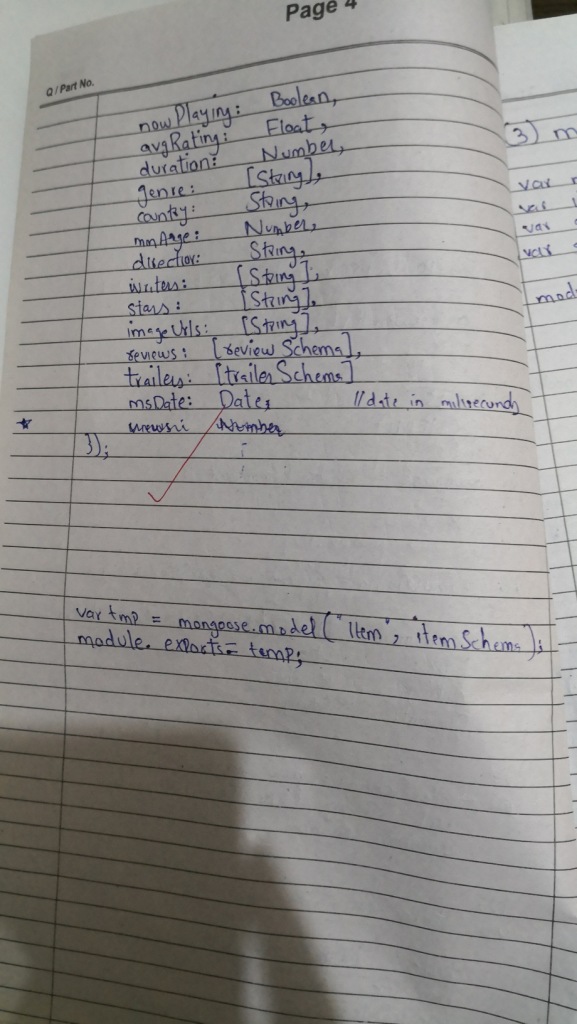 Page 4
Q / Part No.
nowPlaying: Boolean,
avgRating: Float,
duration: Number,
genre: [String],
country: String,
minAge: Number,
director: String,
writers: [String],
stars: [String],
imageUrls: [String],
reviews: [reviewSchema],
trailers: [trailerSchema]
msDate: Date, //date in miliseconds
Number
});
var tmp = mongoose.model("Item", itemSchema);
module.exports= temp;
(3) m
var
var
var
var
mod